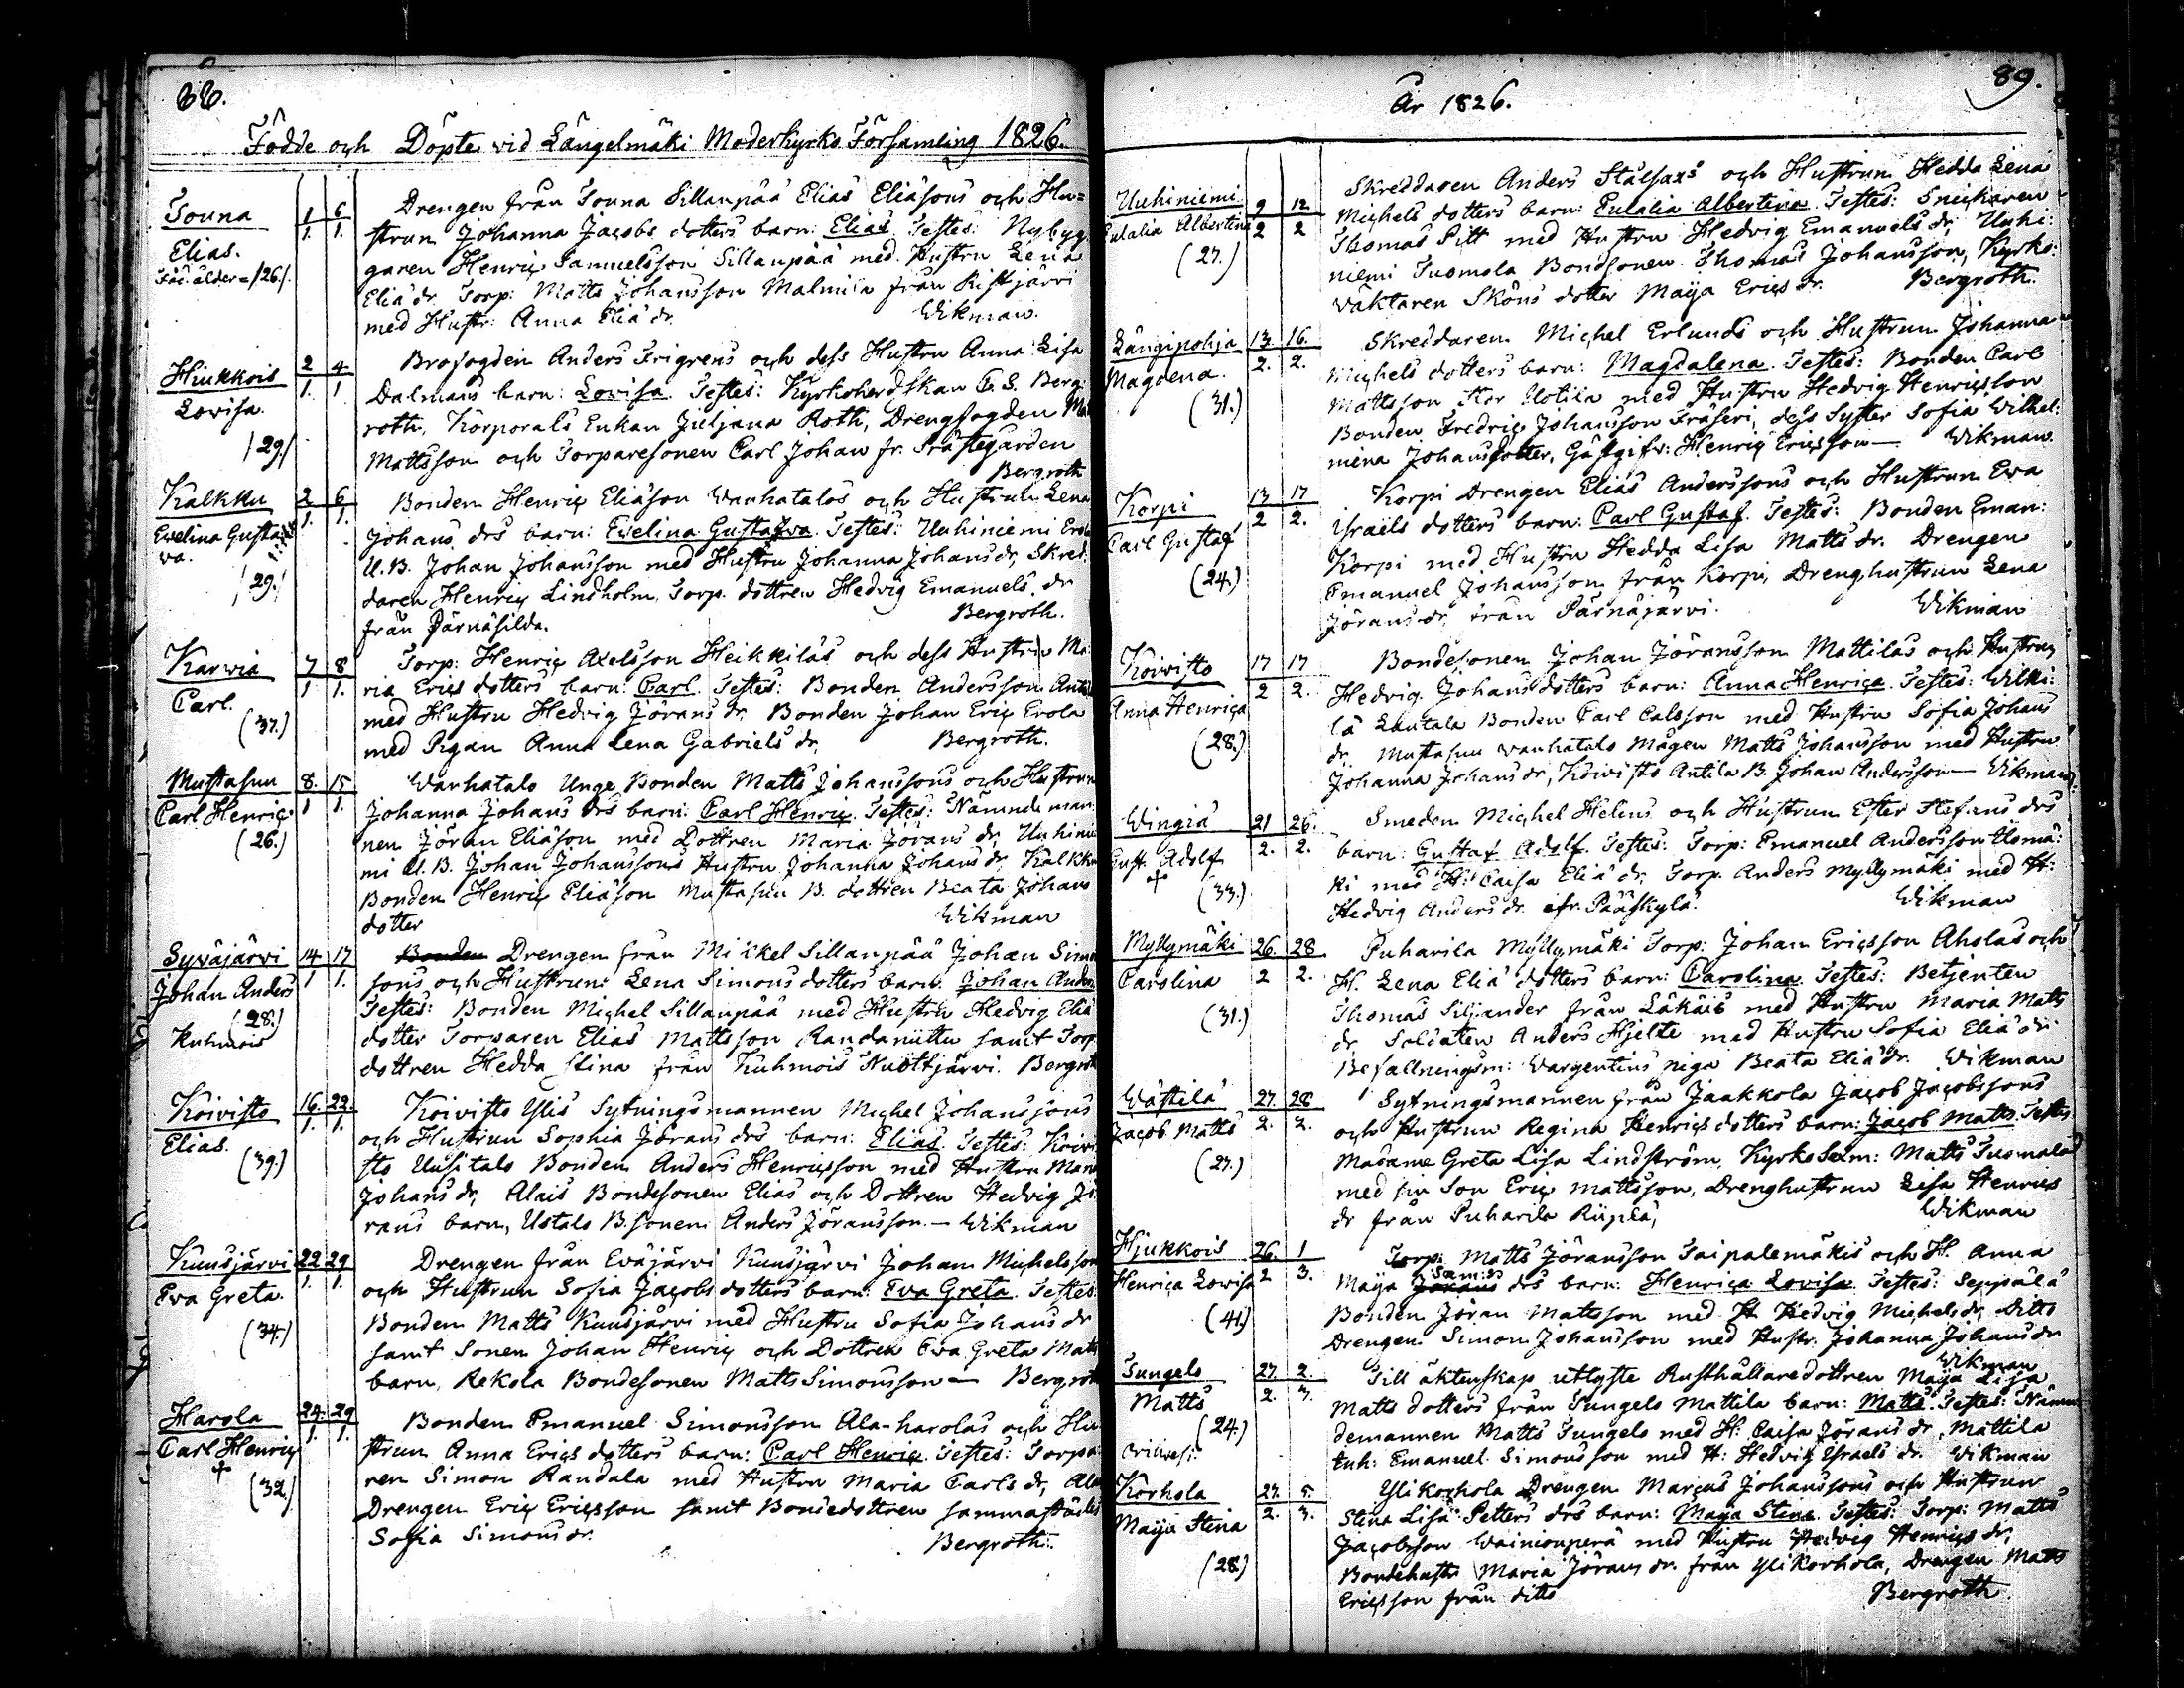 88.
Födde och Döpte vid Längelmäki Moderkyrko Församling 1826.
Touna
Elias.
1 6
1. 1.
Drengen från Touna Sillanpää Elias Eliäsons och Hu=
strun Johanna Jacobs dotters barn: Elias. Testes: Nybyg-
garen Henric Samuelsson Sillanpää med Hustru Lena
Eliä dr. Torp: Matts Johansson Malmila från Ristjärvi
med Hustr: Anna Eliä dr. Wikman.
Hiukkois
Lovisa
/29/
2 4
1. 1.
Brofogden Anders Frigrens och dess Hustru Anna Lisa
Dalmans barn: Lovisa. Testes: Kyrkoherdskan C. S. Berg:
roth, Korporals Enkan Juljana Roth, Drengfogden
Mattsson och Torparesonen Carl Johan fr. Prästegården
Bergroth
Kalkku
Evelina Gusta
va.
/29/
2 6
1. 1.
Bonden Henric Eliäson Wanhatalos och Hustrun Lena
Johans drs barn: Evelina Gustafva. Testes: Uuhiniemi Erola
U. B. Johan Johansson med Hustru Johanna Johans dr, Skräd:
daren Henric Lindholm, Torp. dottren Hedvig Emanuels dr
från Pärnäsilda. Bergroth.
Karvia
Carl.
(37.)
7 8
1 1.
Torp: Henric Axelsson Heikkiläs och dess Hustru Ma:
ria Erics dotters barn: Carl. Testes: Bonden Andersson
med Hustru Hedvig Jörans dr. Bonden Johan Eric Erola
med Pigan Anna Lena Gabriels dr, Bergroth.
Mustasuu
Carl Henric
(26.)
8. 15
1 1.
Wanhatalo Unge Bonden Matts Johanssons och Hustrun
Johanna Johans drs barn: Carl Henric. Testes: Nämndeman
nen Jöran Eliäson med Dottren Maria Jörans dr, Uuhinie
mi U. B. Johan Johanssons Hustru Johanna Johans dr, Kalkku
Bonden Henric Eliäson Mustasuu B. dottren Beata Johans
dotter Wikman
Syväjärvi
Johan Anders
(28.)
Kuhmois
14 17
1 1.
Bonden Drengen från Mickel Sillanpää Johan Simo
sons och Hustrun: Lena Simons dotters barn: Johan Anders
Testes: Bonden Michel Sillanpää med Hustru Hedvig Eliä
dotter Torparen Elias Mattsson Randaniittu samt Torp.
dottren Hedda Stina från Kuhmois Nuottjärvi. Bergroth
Koivisto
Elias.
(39.)
16. 22.
1. 1.
Koivisto Ylis Sytningsmannen Michel Johanssons
och Hustrun Sophia Jörans drs barn: Elias. Testes: Koivi
sto Uusitalo Bonden Anders Henricsson med Hustru Maria
Johans dr, Alais Bondesonen Elias och Dottren Hedvig Jö
rans barn, Ustalo B. sonen Anders Jöransson.— Wikman
Kuusjärvi
Eva Greta.
(34.)
22 29
1. 1.
Drengen från Eväjärvi Kuusjärvi Johan Michelsson
och Hustrun Sofia Jacobs dotters barn: Eva Greta. Testes:
Bonden Matts Kuusjärvi med Hustru Sofia Johans dr
samt Sonen Johan Henric och Dottren Eva Greta Matts
barn, Rekola Bondesonen Matts Simonsson— Bergroth
Harola
Carl Henric
+
(32.)
24. 29
1. 1.
Bonden Emanuel Simonsson Ala-harolas och Hu
strun Anna Erics dotters barn: Carl Henric. Testes: Torpa
ren Simon Randala med Hustru Maria Carls dr, Ala
Drengen Eric Ericsson samt Bondedottren sammastädes
Sofia Simons dr. Bergroth.
89.
År 1826.
Uuhiniemi
Eulalia Albertina
(27.)
9 12
2 2
Skreddaren Anders Stålfaxs och Hustrun Hedda Lena
Michels dotters barn: Eulalia Albertina. Testes: Snickaren
Thomas Pilt med Hustru Hedvig Emanuels dr, Uuhi:
niemi Tuomola Bondsonen Thomas Johansson, Kyrko:
väktaren Sköns dotter Maija Erics dr. Bergroth.
Längipohja
Magdena.
(31.)
13. 16.
2. 2.
Skreddaren Michel Erlunds och Hustrun Johanna
Michels dotters barn: Magdalena. Testes: Bonden Carl
Mattsson Stor Uotila med Hustru Hedvig Henricsson
Bonden Fredric Johansson Träseri, dess Syster Sofia Wilhel:
mina Johansdotter, Gästgifv: Henric Ericsson— Wikman.
Korpi
Carl Gustaf
(24.)
13 17
2 2.
Korpi Drengen Elias Anderssons och Hustrun Eva
Israels dotters barn: Carl Gustaf. Testes: Bonden Eman:
Korpi med Hustru Hedda Lisa Matts dr. Drengen
Emanuel Johansson från Korpi, Drenghustrun Lena
Jörans dr, från Pärnäjärvi. Wikman
Koivisto
Anna Henrica
(28.)
17 17
2 2.
Bondesonen Johan Jöransson Mattilas och Hustrun
Hedvig Johans dotters barn: Anna Henrica. Testes: Wilki:
lä Lautala Bonden Carl Calsson med Hustru Sofia Johans
dr, Mustasuu Wanhatalo Mågen Matts Johansson med Hustru
Johanna Johans dr, Koivisto Antila B. Johan Andersson— Wikman
Wingiä
Gust. Adolf
+
(33.)
21 26.
2. 2.
Smeden Michel Helins och Hustrun Ester Stefans drs
barn: Gustaf Adolf. Testes: Torp: Emanuel Andersson Usmä:
ki med H: Caisa Eliä dr, Torp. Anders Myllymäki med H:
Hedvig Anders dr. fr. Pääskylä. Wikman
Myllymäki
Carolina
(31.)
26. 28
2 2.
Puharila Myllymäki Torp: Johan Ericsson Aholas och
H. Lena Eliä dotters barn: Carolina. Testes: Betjenten
Thomas Siljander från Läkäis med Hustru Maria Matts
dr, Soldaten Anders Hjelte med Hustru Sofia Eliä dr
Befallningsm: Wargentins piga Beata Eliä dr. Wikman
Wästilä
Jacob Matts
(27.)
27. 28
2. 2.
Sytningsmannen från Jaakkola Jacob Jacobssons
och Hustrun Regina Henrics dotters barn: Jacob Matts. Testes
Madame Greta Lisa Lindström, Kyrko Sexm: Matts Tuomala
med sin Son Eric Mattsson, Drenghustrun Lisa Henrics
dr från Puharila Riipilä, Wikman
Hjukkois
Henrica Lovisa
(41.)
26. 1
2 3.
Torp: Matts Jöransson Taipalemäkis och H. Anna
Maija Jörans Sam:s drs barn: Henrica Lovisa. Testes: Seppälä
Bonden Jöran Mattsson med H. Hedvig Michels dr, Ditto
Drengen Simon Johansson med Hustr. Johanna Johans dr
Wikman
Sungels
Matts
(24.)
Orihvesi:
27. 2.
2. 3.
Till äktenskap utlyste Rusthållaredottren Maija Lisa
Matts dotters från Sungels Mattila barn: Matts. Testes: Nämn
demannen Matts Sungels med H: Caisa Jörans dr, Mattila
Inh: Emanuel Simonsson med H: Hedvig Israels dr. Wikman
Korhola
Maija Stina
(28.)
27. 5.
2. 3.
Ylikorhola Drengen Marcus Johanssons och Hustrun
Stina Lisa Petters drs barn: Maija Stina. Testes: Torp: Matts
Jacobsson Wainionperä med Hustru Hedvig Henrics dr,
Bondehustr. Maria Jörans dr. från Ylikorhola, Drengen Matts
Ericsson från ditto Bergroth